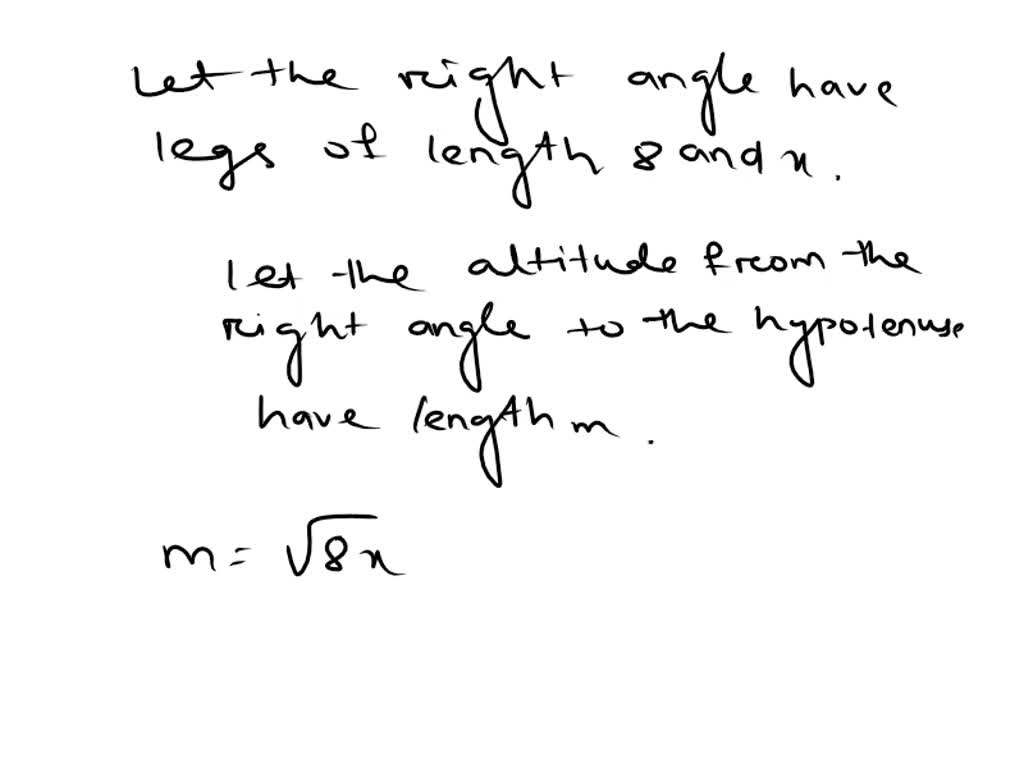 Let the right angle have
legs of length 8 and x.
let the altitude from the
right angle to the hypotenuse
have length m.
m = √8x